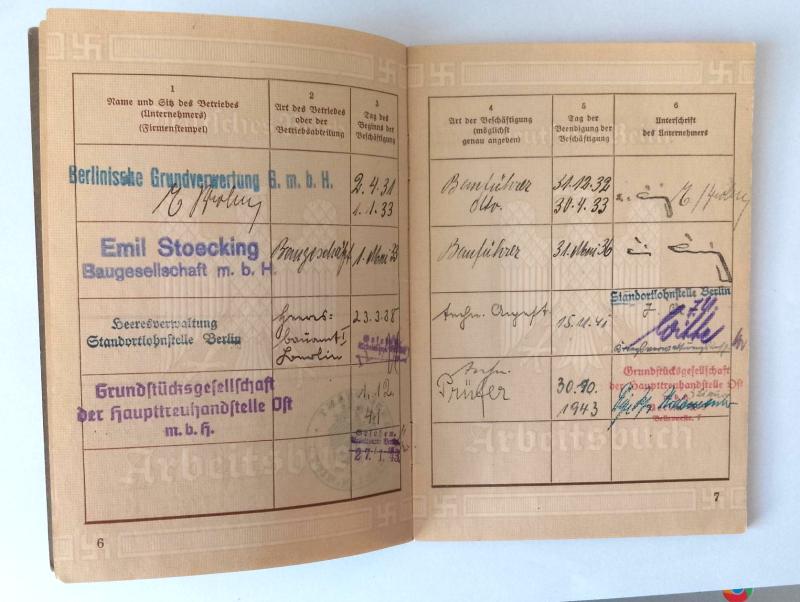 1
Name und Sitz des Betriebes
(Unternehmers)
(Firmenstempel)
2
Art des Betriebes
oder der
Betriebsabteilung
3
Tag des
Beginns der
Beschäftigung
Berlinische Grundverwertung G. m. b. H.
2.4.31
1.1.33
Emil Stoecking
Baugesellschaft m. b. H.
Baugeschäft
Heeresverwaltung
Standortlohnstelle Berlin
Heeres-
bauamt I
23.3.38
Grundstücksgesellschaft
der Haupttreuhandstelle Ost
m. b. H.
1.12.
41
Gesehen
27.1.43
Arbeitsbuch
6
4
Art der Beschäftigung
(möglichst
genau angeben)
5
Tag der
Beendigung der
Beschäftigung
6
Unterschrift
des Unternehmers
Bauführer
31.12.32
dto.
30.4.33
Bauführer
31. Mai 36
Techn. Angest.
15.11.41
Standortlohnstelle Berlin
Techn.
Prüfer
30.10.
1943
Grundstücksgesellschaft
der Haupttreuhandstelle Ost
Arbeitsbuch
7